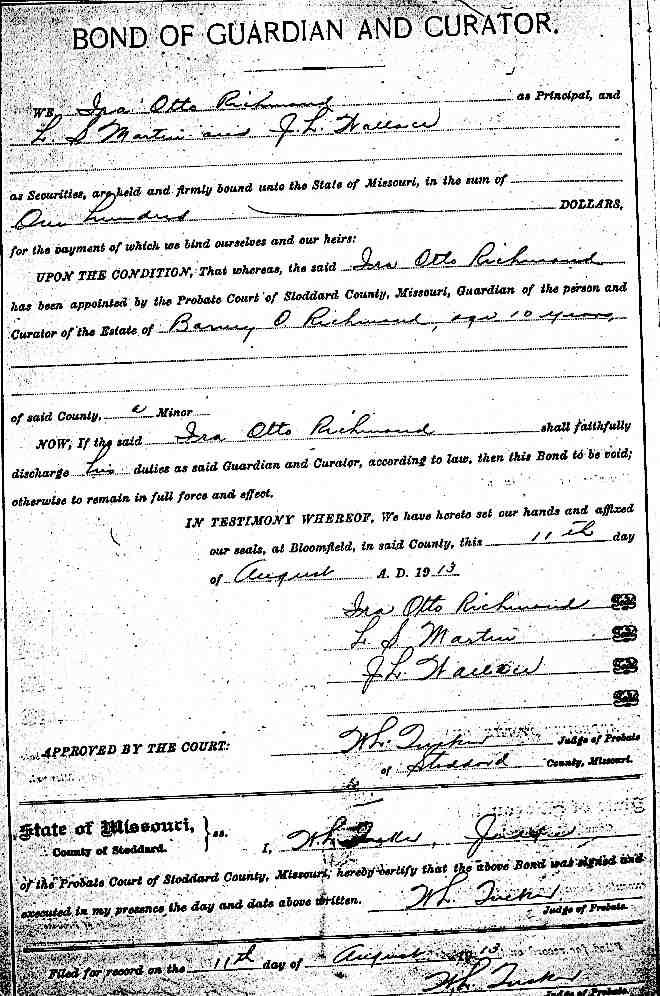 BOND OF GUARDIAN AND CURATOR.
WE, Ira Otto Richmond as Principal, and
L S Martin and J. L. Wallace
as Securities, are held and firmly bound unto the State of Missouri, in the sum of
One hundred DOLLARS,
for the payment of which we bind ourselves and our heirs:
UPON THE CONDITION, That whereas, the said Ira Otto Richmond
has been appointed by the Probate Court of Stoddard County, Missouri, Guardian of the person and
Curator of the Estate of Barney O Richmond, age 10 years,
of said County, a Minor
NOW, If the said Ira Otto Richmond shall faithfully
discharge his duties as said Guardian and Curator, according to law, then this Bond to be void;
otherwise to remain in full force and effect.
IN TESTIMONY WHEREOF, We have hereto set our hands and affixed
our seals, at Bloomfield, in said County, this 11th day
of August A. D. 1913
Ira Otto Richmond
L S Martin
J. L. Wallace
APPROVED BY THE COURT: W L Tucker Judge of Probate
of Stoddard County, Missouri.
State of Missouri,
County of Stoddard. } ss. I, W L Tucker, Judge
of the Probate Court of Stoddard County, Missouri, hereby certify that the above Bond was signed and
executed in my presence the day and date above written. W L Tucker
Judge of Probate.
Filed for record on the 11th day of August 1913.
W L Tucker
Judge of Probate.